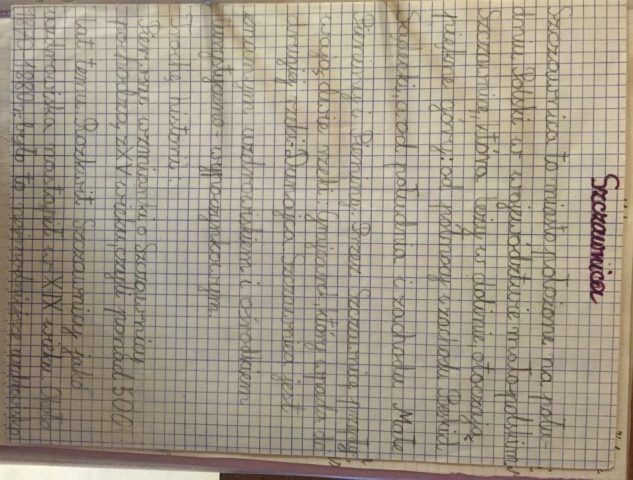 Szczawnica
Szczawnica to miasto położone na połu-
dniu Polski w województwie małopolskim
Szczawnicę, która leży w dolinie otaczają
piękne góry: od północy i zachodu Beskid
Sądecki, a od południa i zachodu Małe
Pieniny i Pieniny. Przez Szczawnicę
dwie rzeki: Grajcarek, który wpada do
drugiej rzeki - Dunajca. Szczawnica jest
znanym uzdrowiskiem i ośrodkiem
turystyczno - wypoczynkowym.
Trochę historii:
Pierwsze wzmianki o Szczawnicy
pochodzą z XV wieku, czyli ponad 500
lat temu. Rozkwit Szczawnicy jako
uzdrowiska nastąpił w XIX wieku. Około
było to